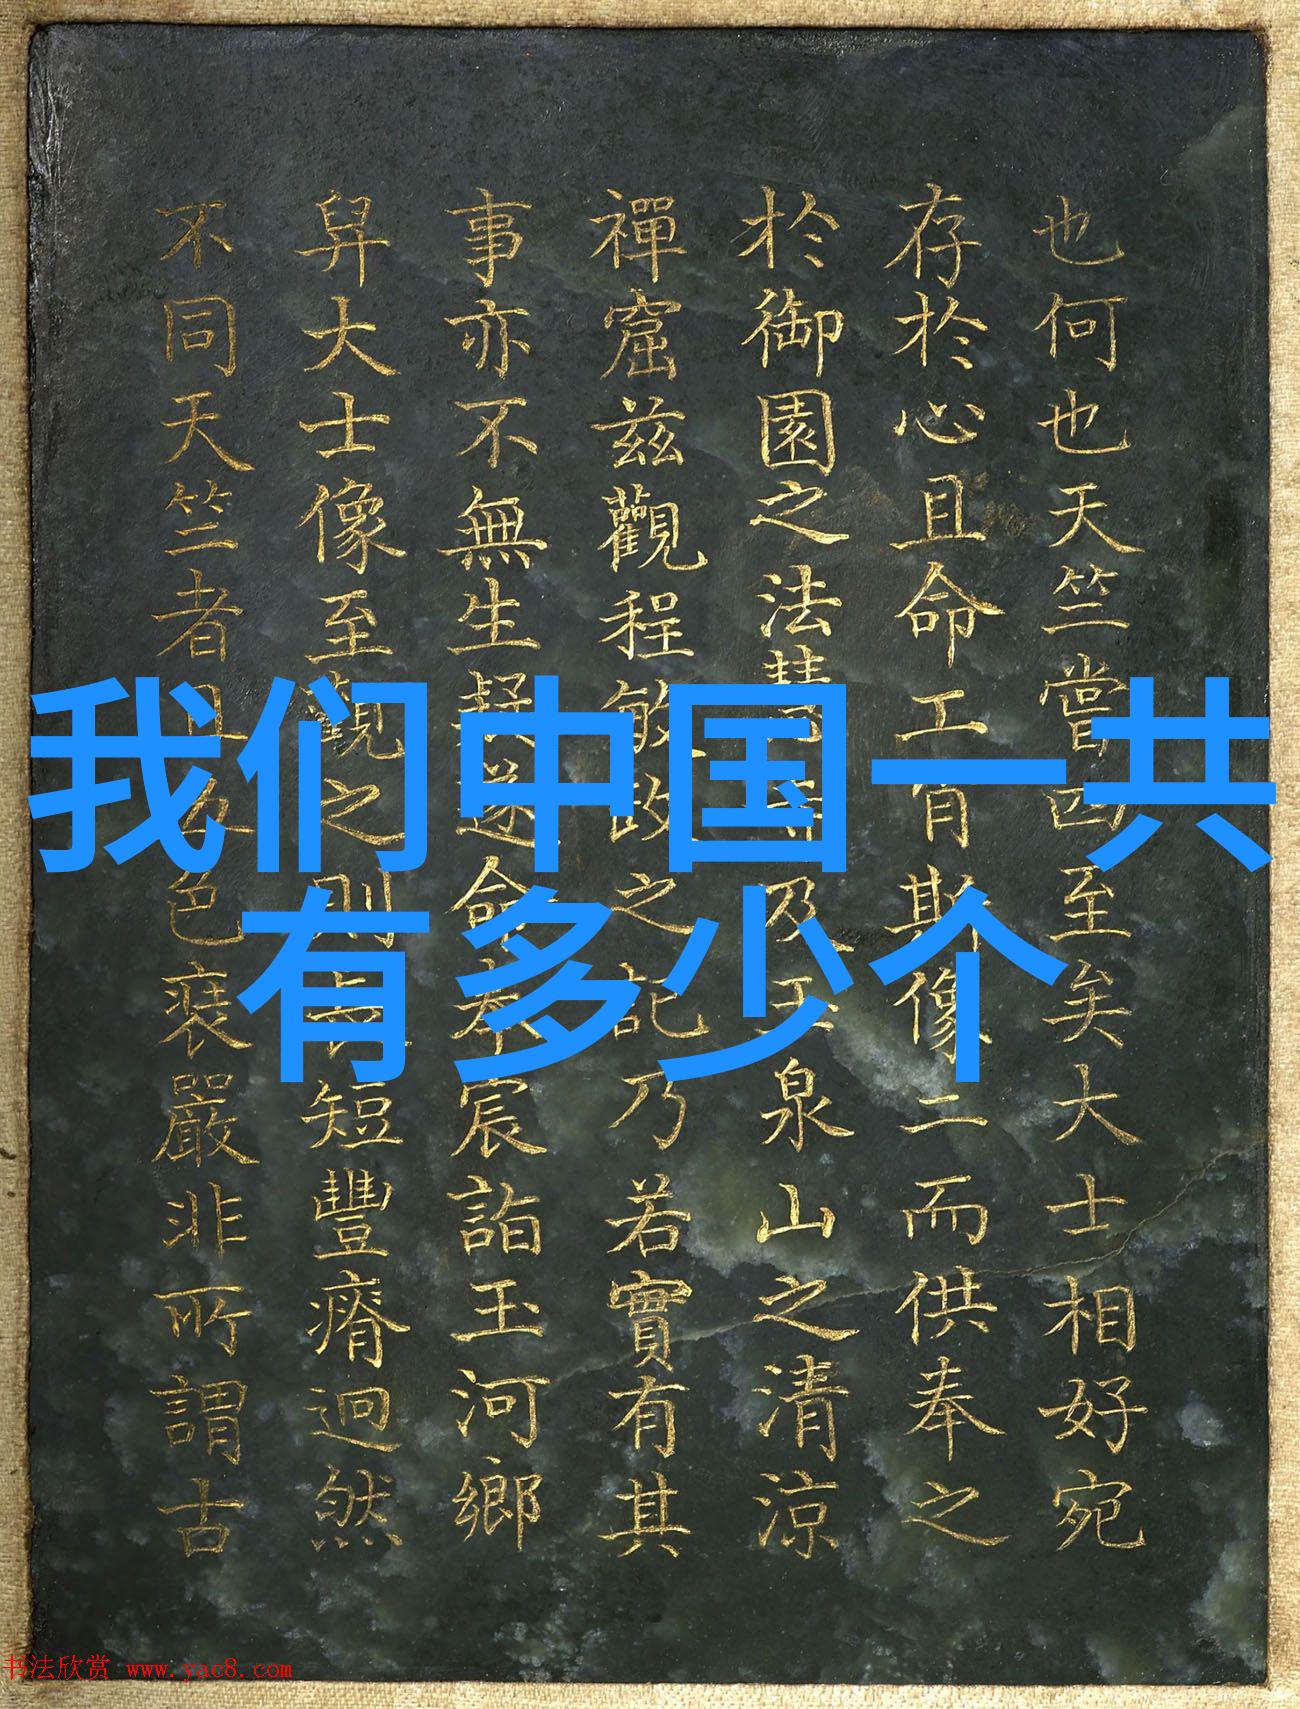 我们中国一共
有多少个
也何也天竺嘗西至矣大士相好宛
存於心且命工肖斯像二而供奉之
於御園之法慧寺及玉泉山之清涼
禪窟兹觀程敏政之記乃若實有其
事亦不無生疑遂命奉宸詣玉河鄉
舁大士像至觀之則長短豐瘠迥然
不同天竺者且色裝嚴非所謂古
书法欣赏 www.yac8.com